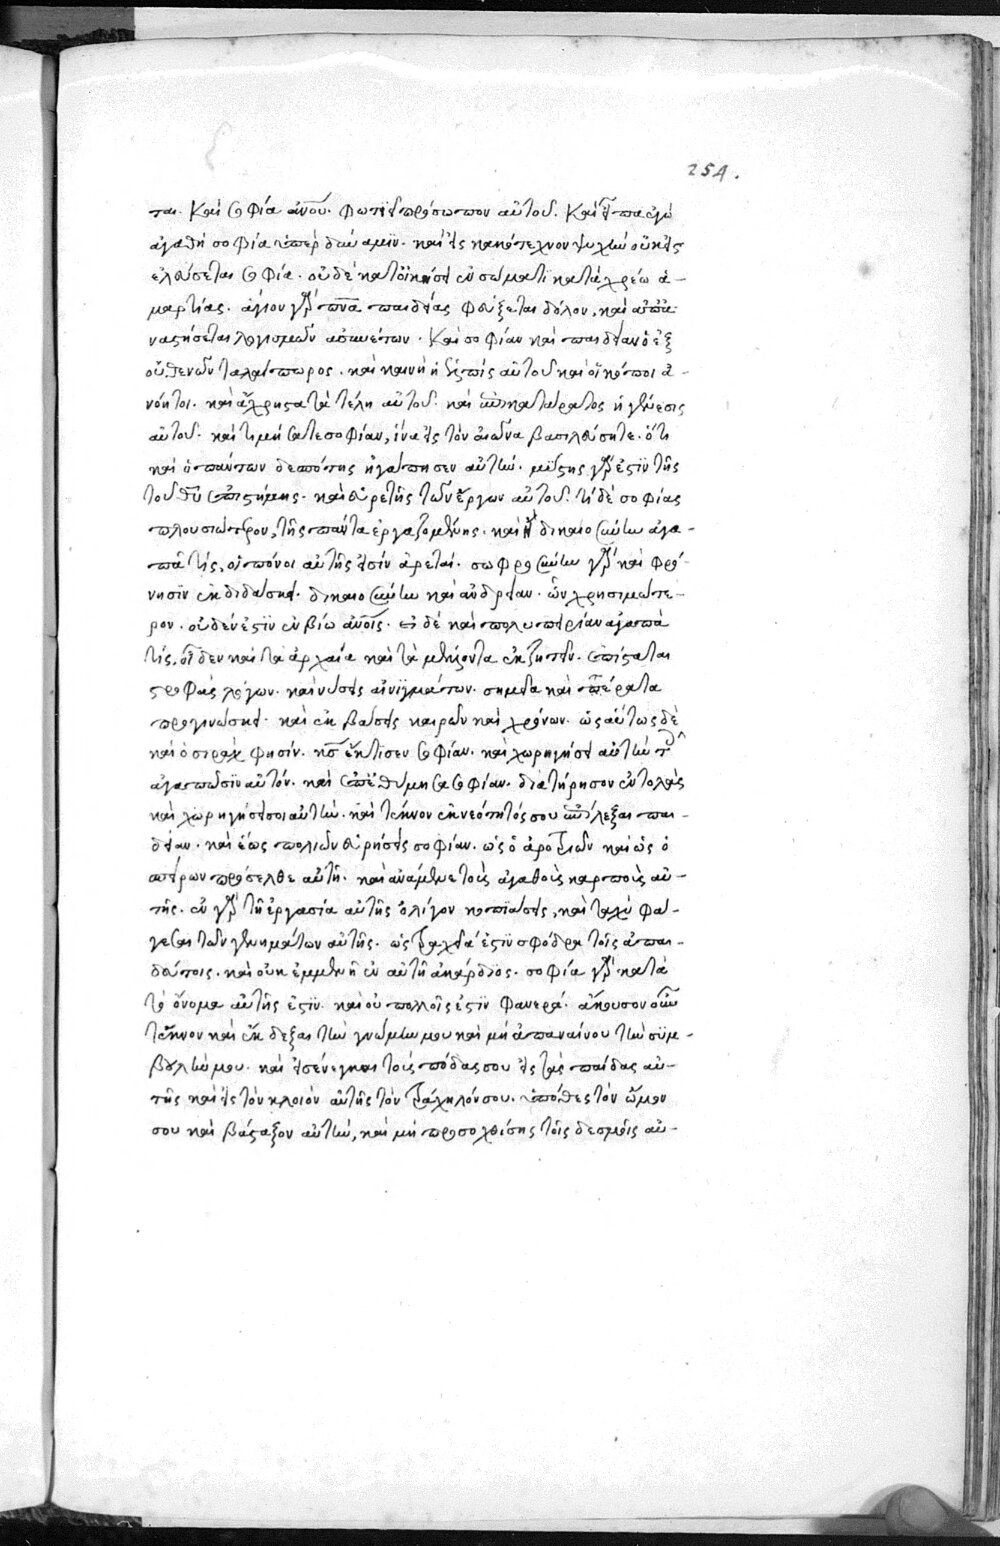 254.
ται. καὶ σοφία ἀνου. φωτιεῖ πρόσωπον αὐτοῦ. καὶ
ἀγαθὴ σοφία ὑπὲρ δύναμιν. καὶ εἰς κακότεχνον ψυχὴν οὐκ εἰσ
ελεύσεται σοφία. οὐδὲ κατοικήσει ἐν σώματι κατάχρεω ἁ-
μαρτίας. ἅγιον γὰρ πνα παιδείας φεύξεται δόλον, καὶ ἀπα
ναστήσεται λογισμῶν ἀσυνέτων. καὶ σοφίαν καὶ παιδείαν ὁ ἐξ
ουθενῶν ταλαίπωρος. καὶ κενὴ ἡ ἐλπὶς αὐτοῦ καὶ οἱ κόποι ἀ-
νόητοι. καὶ ἄχρηστα τὰ τέλη αὐτοῦ. καὶ ἐπικατάρατος ἡ γένεσις
αὐτοῦ. καὶ τιμήσατε σοφίαν, ἵνα εἰς τὸν αἰῶνα βασιλεύσητε. ὅτι
καὶ ὁ πάντων δεσπότης ἠγάπησεν αὐτήν. μύστης γὰρ ἐστὶν τῆς
τοῦ θυ ἐπιστήμης. καὶ εὑρετὴς τῶν ἔργων αὐτοῦ. τί δὲ σοφίας
πλουσιώτερον, τῆς πάντα ἐργαζομένης. καὶ εἰ δικαιοσύνην ἀγα-
πᾶ τίς, οἱ πόνοι αὐτῆς εἰσὶν ἀρεταί. σωφροσύνην γὰρ καὶ φρό-
νησιν ἐκδιδάσκει. δικαιοσύνην καὶ ἀνδρείαν. ὧν χρησιμώτε-
ρον. οὐδέν ἐστιν ἐν βίω ἀνοις. εἰ δὲ καὶ πολυπειρίαν ἀγαπᾶ
τίς. οἶδεν καὶ τὰ ἀρχαῖα καὶ τὰ μέλλοντα ἐκζητεῖν. ἐπίσταται
στροφὰς λόγων. καὶ λύσεις αἰνιγμάτων. σημεῖα καὶ τέρατα
προγινώσκει. καὶ ἐκβάσεις καιρῶν καὶ χρόνων. ὡσαύτως δὲ
καὶ ὁ σιρὰχ φησίν. κς ἔκτισεν σοφίαν. καὶ χωρηγήσει αὐτὴν τοῖς
ἀγαπῶσιν αὐτόν. καὶ ἐπεθύμησα σοφίαν. διατήρησον ἐντολὰς
καὶ χωρηγήσει σοι αὐτήν. καὶ τέκνον ἐκ νεότητός σου ἐπίλεξαι παι-
δείαν. καὶ ἕως πολιῶν εὑρήσεις σοφίαν. ὡς ὁ ἀροτριῶν καὶ ὡς ὁ
σπείρων πρόσελθε αὐτῆ. καὶ ἀνάμενε τοὺς ἀγαθοὺς καρποὺς αὐ-
τῆς. ἐν γὰρ τῆ ἐργασία αὐτῆς ὀλίγον κοπιάσεις, καὶ ταχὺ φά-
γεσαι τῶν γεννημάτων αὐτῆς. ὡς τραχεῖα ἐστὶν σφόδρα τοῖς ἀπαι-
δεύτοις. καὶ οὐκ ἐμμενεῖ ἐν αὐτῆ ἀκάρδιος. σοφία γὰρ κατὰ
τὸ ὄνομα αὐτῆς ἐστιν. καὶ οὐ πολλοῖς ἐστιν φανερά. ἄκουσον οὖν
τέκνον καὶ ἔκδεξαι τὴν γνώμην μου καὶ μὴ ἀπαναίνου τὴν συμ-
βουλήν μου. καὶ εἰσένεγκαι τοὺς πόδας σου εἰς τὰς παίδας αὐ-
τῆς καὶ εἰς τὸν κλοιὸν αὐτῆς τὸν τράχηλόν σου. ὑπόθες τὸν ὦμον
σου καὶ βάσταξον αὐτήν, καὶ μὴ προσοχθίσης τοῖς δεσμοῖς αὐ-